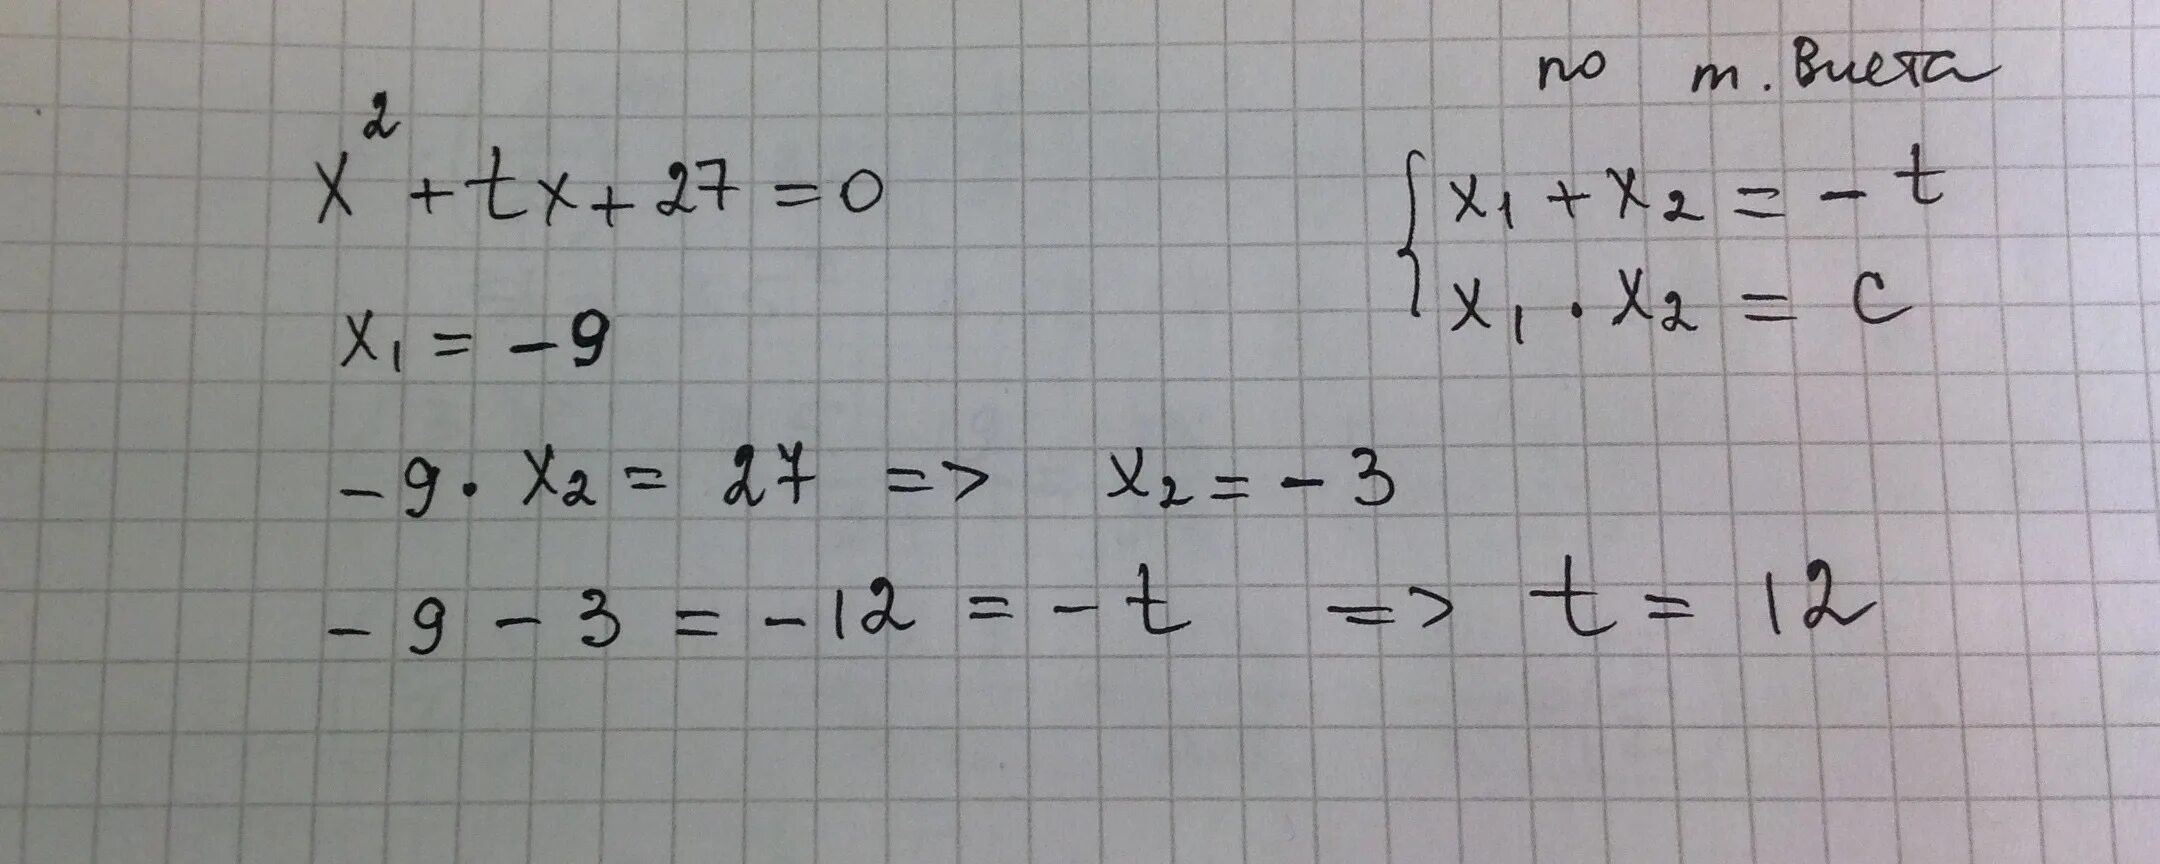 по т. Виета
x² + tx + 27 = 0
{ x₁ + x₂ = - t
x₁ · x₂ = c
x₁ = - 9
- 9 · x₂ = 27 => x₂ = - 3
- 9 - 3 = - 12 = - t => t = 12